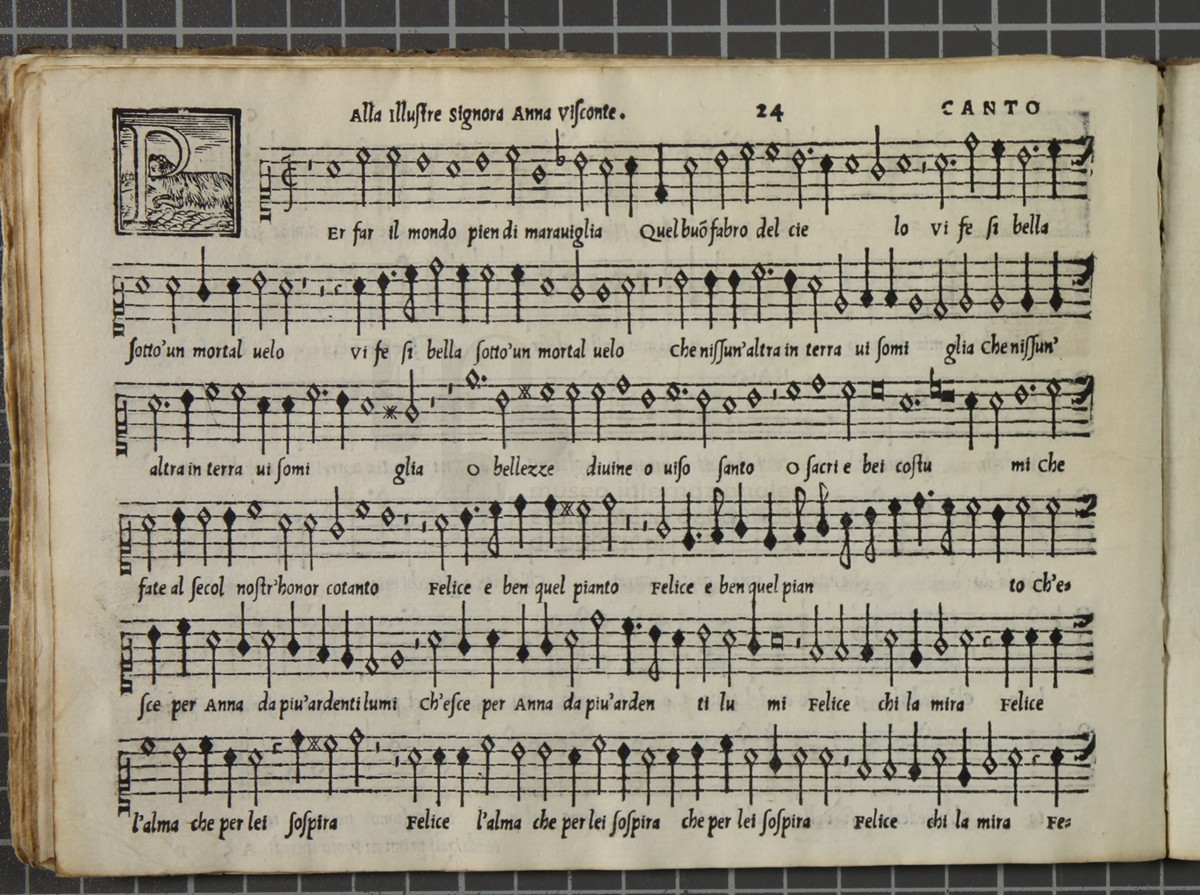 Alla Illuſtre Signora Anna Viſconte. 24 CANTO
PEr far il mondo pien di marauiglia Quel buō fabro del cie lo Vi fe ſi bella
ſotto'un mortal uelo Vi fe ſi bella ſotto'un mortal uelo Che niſſun'altra in terra ui ſomi glia Che niſſun'
altra in terra ui ſomi glia O bellezze diuine o uiſo ſanto O ſacri e bei coſtu mi Che
fate al ſecol noſtr'honor cotanto Felice e ben quel pianto Felice e ben quel pian to Ch'e=
ſce per Anna da piu'ardenti lumi Ch'eſce per Anna da piu'arden ti lu mi Felice chi la mira Felice
l'alma che per lei ſoſpira Felice l'alma che per lei ſoſpira che per lei ſoſpira Felice chi la mira Fe=